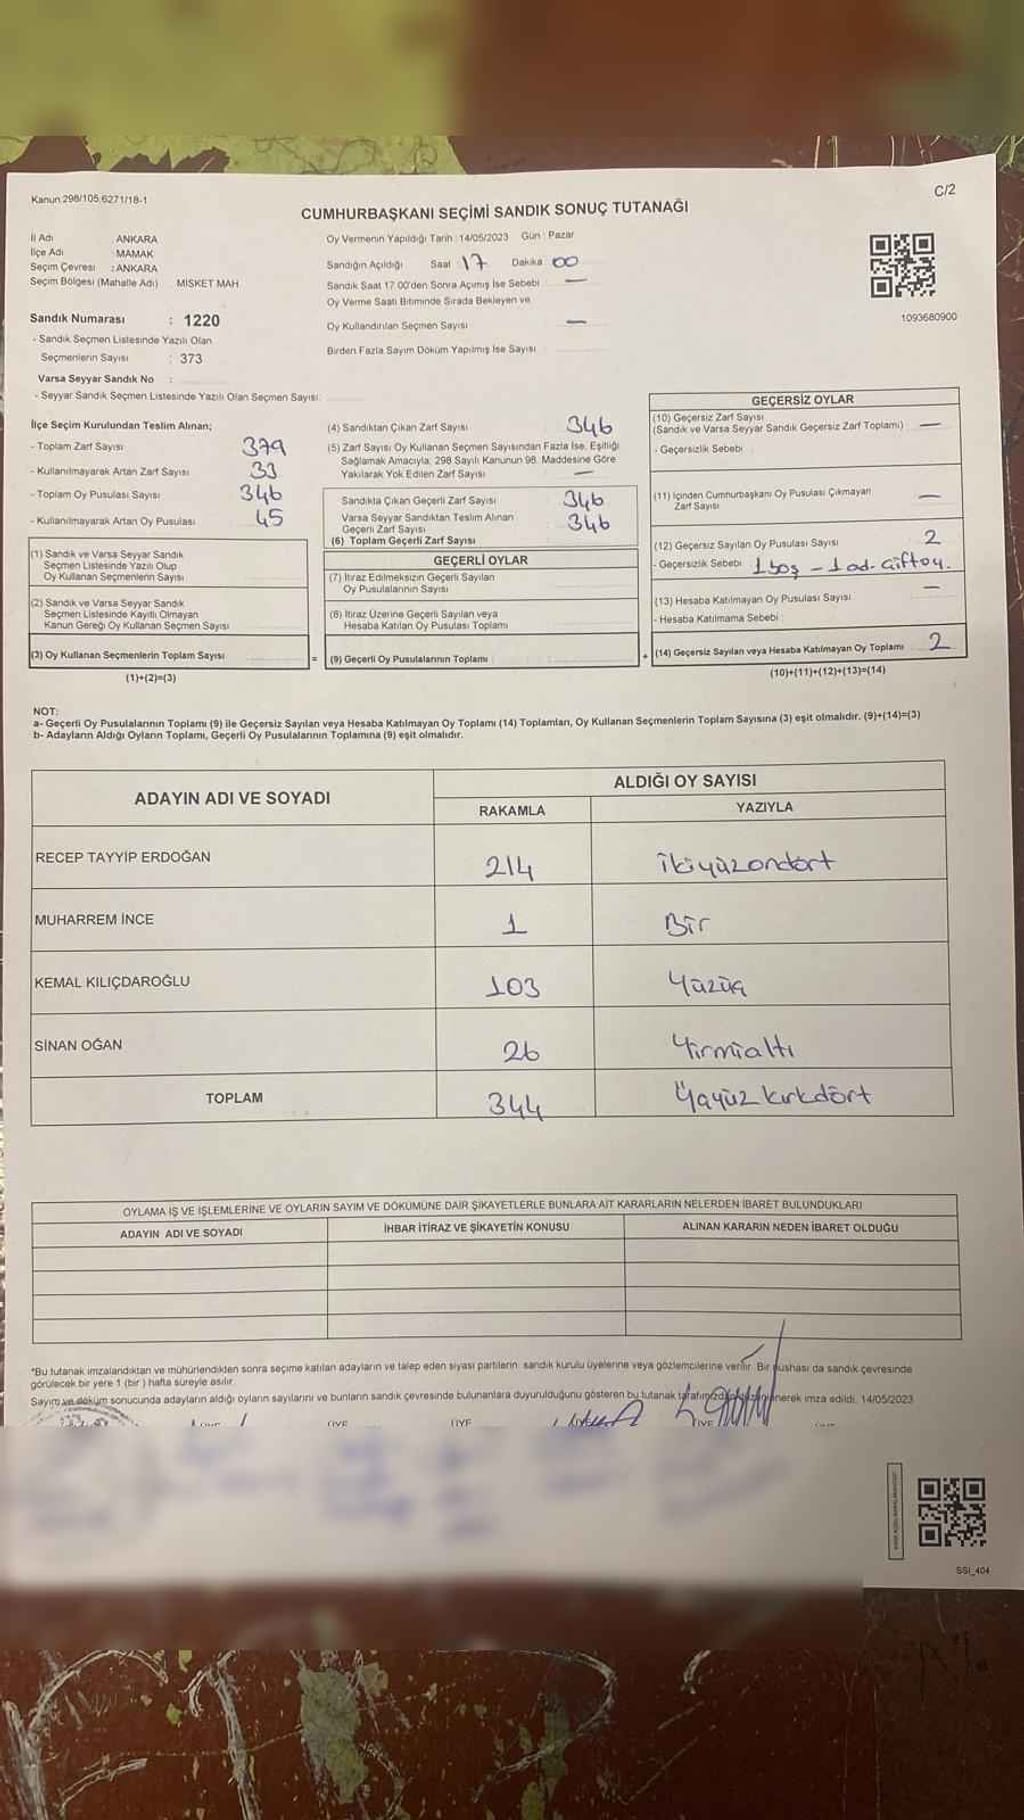 Kanun 298/105,6271/18-1
C/2
CUMHURBAŞKANI SEÇİMİ SANDIK SONUÇ TUTANAĞI
İl Adı : ANKARA
İlçe Adı : MAMAK
Seçim Çevresi : ANKARA
Seçim Bölgesi (Mahalle Adı) : MİSKET MAH
Oy Vermenin Yapıldığı Tarih : 14/05/2023 Gün : Pazar
Sandığın Açıldığı Saat 17 Dakika 00
Sandık Saat 17.00'den Sonra Açımış İse Sebebi —
Oy Verme Saati Bitiminde Sırada Bekleyen ve
Oy Kullandırılan Seçmen Sayısı —
Birden Fazla Sayım Döküm Yapılmış İse Sayısı
1093680900
Sandık Numarası : 1220
- Sandık Seçmen Listesinde Yazılı Olan
Seçmenlerin Sayısı : 373
Varsa Seyyar Sandık No :
- Seyyar Sandık Seçmen Listesinde Yazılı Olan Seçmen Sayısı:
İlçe Seçim Kurulundan Teslim Alınan;
- Toplam Zarf Sayısı 379
- Kullanılmayarak Artan Zarf Sayısı 33
- Toplam Oy Pusulası Sayısı 346
- Kullanılmayarak Artan Oy Pusulası 45
(1) Sandık ve Varsa Seyyar Sandık
Seçmen Listesinde Yazılı Olup
Oy Kullanan Seçmenlerin Sayısı
(2) Sandık ve Varsa Seyyar Sandık
Seçmen Listesinde Kayıtlı Olmayan
Kanun Gereği Oy Kullanan Seçmen Sayısı
(3) Oy Kullanan Seçmenlerin Toplam Sayısı
(1)+(2)=(3)
(4) Sandıktan Çıkan Zarf Sayısı 346
(5) Zarf Sayısı Oy Kullanan Seçmen Sayısından Fazla İse, Eşitliği
Sağlamak Amacıyla; 298 Sayılı Kanunun 98. Maddesine Göre
Yakılarak Yok Edilen Zarf Sayısı —
Sandıkta Çıkan Geçerli Zarf Sayısı 346
Varsa Seyyar Sandıktan Teslim Alınan
Geçerli Zarf Sayısı 346
(6) Toplam Geçerli Zarf Sayısı
GEÇERLİ OYLAR
(7) İtiraz Edilmeksizin Geçerli Sayılan
Oy Pusulalarının Sayısı
(8) İtiraz Üzerine Geçerli Sayılan veya
Hesaba Katılan Oy Pusulası Toplamı
= (9) Geçerli Oy Pusulalarının Toplamı
GEÇERSİZ OYLAR
(10) Geçersiz Zarf Sayısı
(Sandık ve Varsa Seyyar Sandık Geçersiz Zarf Toplamı) —
- Geçersizlik Sebebi :
(11) İçinden Cumhurbaşkanı Oy Pusulası Çıkmayan
Zarf Sayısı —
(12) Geçersiz Sayılan Oy Pusulası Sayısı 2
- Geçersizlik Sebebi 1 boş - 1 ad. Çiftoy.
(13) Hesaba Katılmayan Oy Pusulası Sayısı —
- Hesaba Katılmama Sebebi :
+ (14) Geçersiz Sayılan veya Hesaba Katılmayan Oy Toplamı 2
(10)+(11)+(12)+(13)=(14)
NOT:
a- Geçerli Oy Pusulalarının Toplamı (9) ile Geçersiz Sayılan veya Hesaba Katılmayan Oy Toplamı (14) Toplamları, Oy Kullanan Seçmenlerin Toplam Sayısına (3) eşit olmalıdır. (9)+(14)=(3)
b- Adayların Aldığı Oyların Toplamı, Geçerli Oy Pusulalarının Toplamına (9) eşit olmalıdır.
ADAYIN ADI VE SOYADI
ALDIĞI OY SAYISI
RAKAMLA YAZIYLA
RECEP TAYYİP ERDOĞAN 214 İkiyüzondört
MUHARREM İNCE 1 Bir
KEMAL KILIÇDAROĞLU 103 Yüzüç
SİNAN OĞAN 26 Yirmialtı
TOPLAM 344 Üçyüz kırkdört
OYLAMA İŞ VE İŞLEMLERİNE VE OYLARIN SAYIM VE DÖKÜMÜNE DAİR ŞİKAYETLERLE BUNLARA AİT KARARLARIN NELERDEN İBARET BULUNDUKLARI
ADAYIN ADI VE SOYADI İHBAR İTİRAZ VE ŞİKAYETİN KONUSU ALINAN KARARIN NEDEN İBARET OLDUĞU
*Bu tutanak imzalandıktan ve mühürlendikten sonra seçime katılan adayların ve talep eden siyasi partilerin sandık kurulu üyelerine veya gözlemcilerine verilir. Bir nüshası da sandık çevresinde
görülecek bir yere 1 (bir) hafta süreyle asılır.
Sayım ve döküm sonucunda adayların aldığı oyların sayılarını ve bunların sandık çevresinde bulunanlara duyurulduğunu gösteren bu tutanak imza edildi. 14/05/2023
ÜYE ÜYE ÜYE
SSİ_404